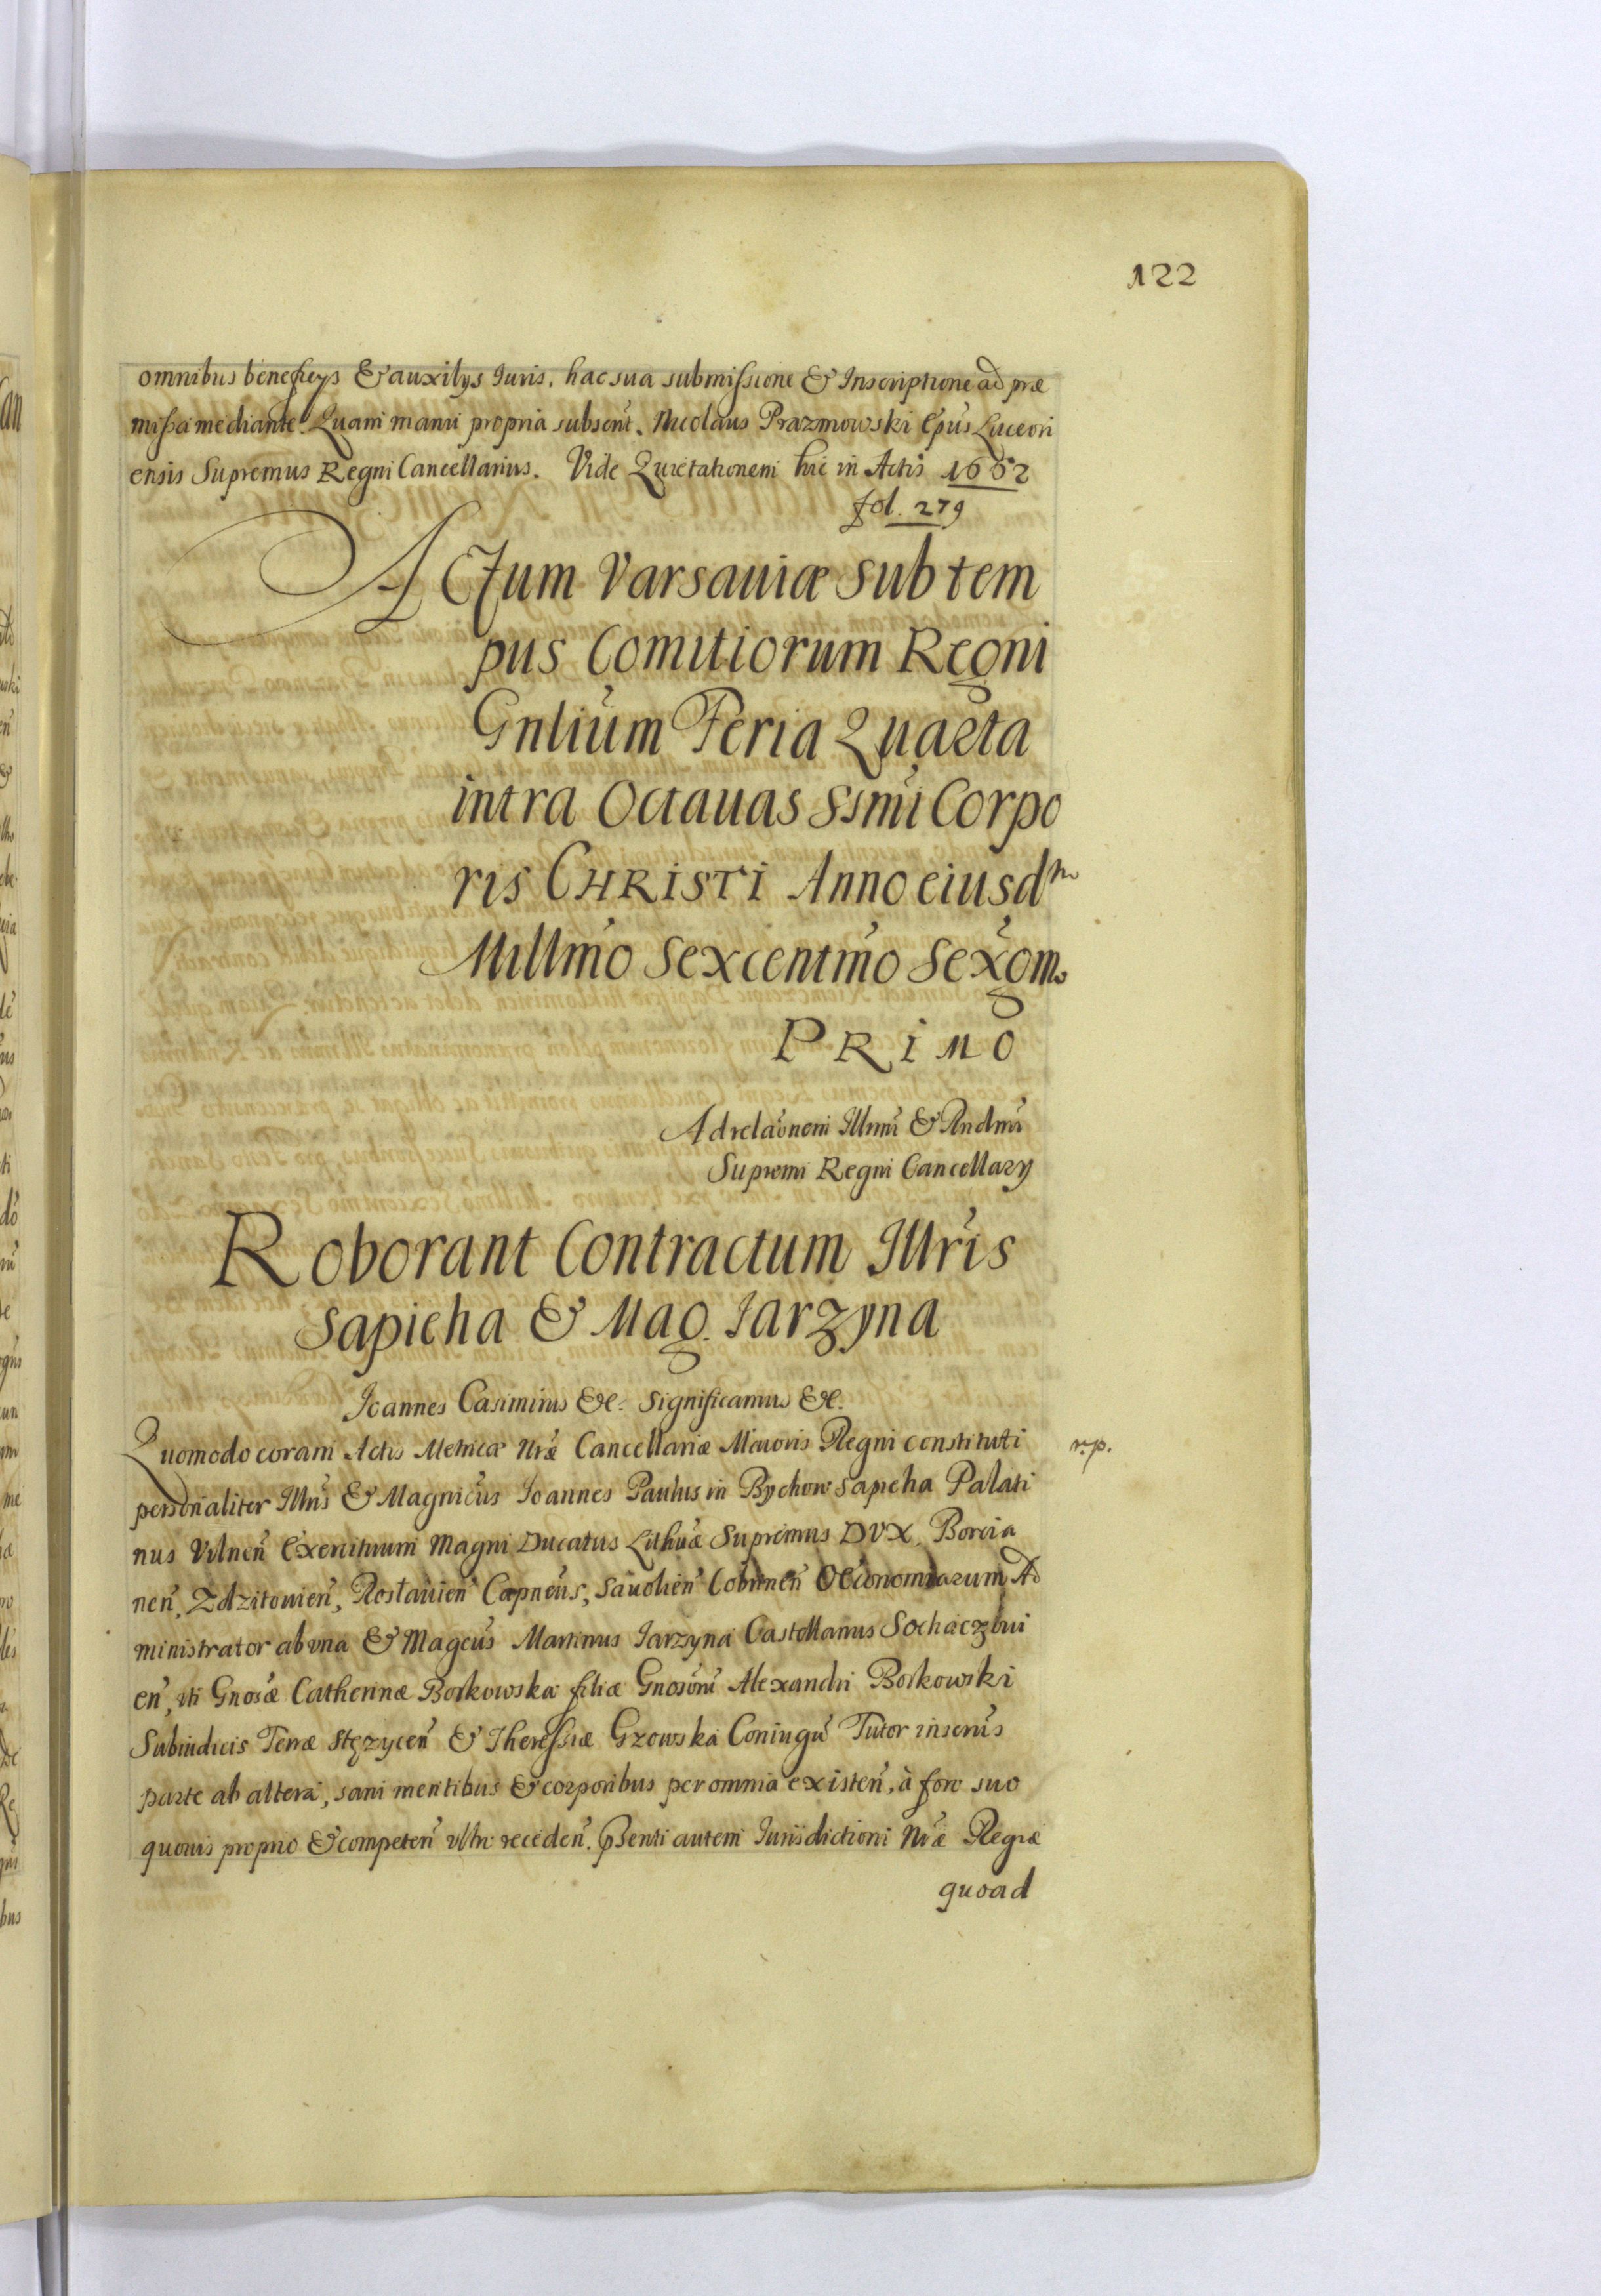 122
omnibus beneficys & auxilys Iuris, hac sua submissione & Inscriptione ad præ
missa mediante. Quam manu propria subscrit. Nicolaus Prazmowski Epus Luceori
ensis Supremus Regni Cancellarius. Vide Quietationem hic in Actis 1662
fol. 279
Actum Varsauiæ sub tem
pus Comitiorum Regni
Gnlium Feria Quarta
intra Octauas SSmi Corpo
ris CHRISTI Anno eiusdm
Millmo Sexcentmo Sexgmo
PRIMO
Ad relaõnem Illrmi & Rndmi
Supremi Regni Cancellary
Roborant Contractum Illris
Sapieha & Mag. Iarzyna
Ioannes Casimirus &c. Significamus &c.
Quomodo coram Actis Metricæ Nræ Cancellariæ Maioris Regni constituti
r.p.
personaliter Illris & Magnicus Ioannes Paulus in Bychow Sapieha Palati
nus Vilnen Exercituum Magni Ducatus Lithuæ Supremus DVX. Borcia
nen, Zdzitouien, Rostauien Capneus, Sauolien Cobrinen Oeconomiarum Ad
ministrator ab vna & Magcus Martinus Iarzyna Castellanus Sochaczeui
en, vti Gnosæ Catherinæ Borkowska filiæ Gnosorum Alexandri Borkowski
Subiudicis Terræ Stęzycen & Theressiæ Gzowska Coniugu Tutor inscrus
parte ab altera, sani mentibus & corporibus per omnia existen, à foro suo
quouis proprio & competen vltro receden. Pßenti autem Iurisdictioni Nræ Regiæ
quoad